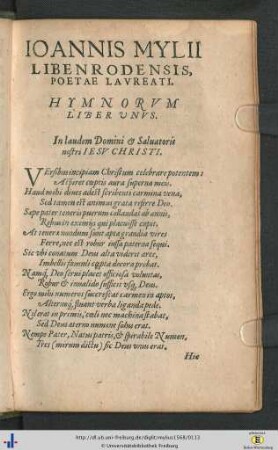 IOANNIS MYLII
LIBENRODENSIS,
POETAE LAVREATI.
HYMNORVM
LIBER VNVS.
In laudem Domini & Saluatoris
nostri IESV CHRISTI.
VErsibus incipiam Christum celebrare potentem:
Aspiret cœptis aura superna meis.
Haud mihi diues adest scribenti carmina vena,
Sed tamen est animus grata referre Deo.
Sæpe pater teneris puerum collaudat ab annis,
Rebus in exiguis qui placuisse cupit.
At tenera nondum sunt apta grandia vires
Ferre, nec est robur iussa paterna sequi.
Sic vbi conatum Deus alta viderit arce,
Imbellis studii cœpta decora probat.
Namq, Deo serui placet officiosa voluntas,
Robur & inualido sufficit vsq, Deus.
Ergo mihi numeros succrescat carmen in aptos,
Alternis fluant verba liganda pede.
Nil erat in primis, cœli nec machina stabat,
Sed Deus æternum numine solus erat.
Nempe Pater, Natus patris, & spirabile Numen,
Tres (mirum dictu) sic Deus vnus erat.
Hoc
http://dl.ub.uni-freiburg.de/diglit/mylius1568/0113
Universitätsbibliothek Freiburg